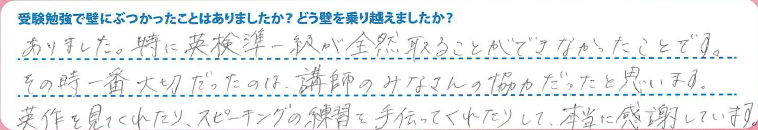 受験勉強で壁にぶつかったことはありましたか？どう壁を乗り越えましたか？
ありました。特に英検準一級が全然取ることができなかったことです。
その時一番大切だったのは、講師のみなさんの協力だったと思います。
英作を見てくれたり、スピーキングの練習を手伝ってくれたりして、本当に感謝しています。